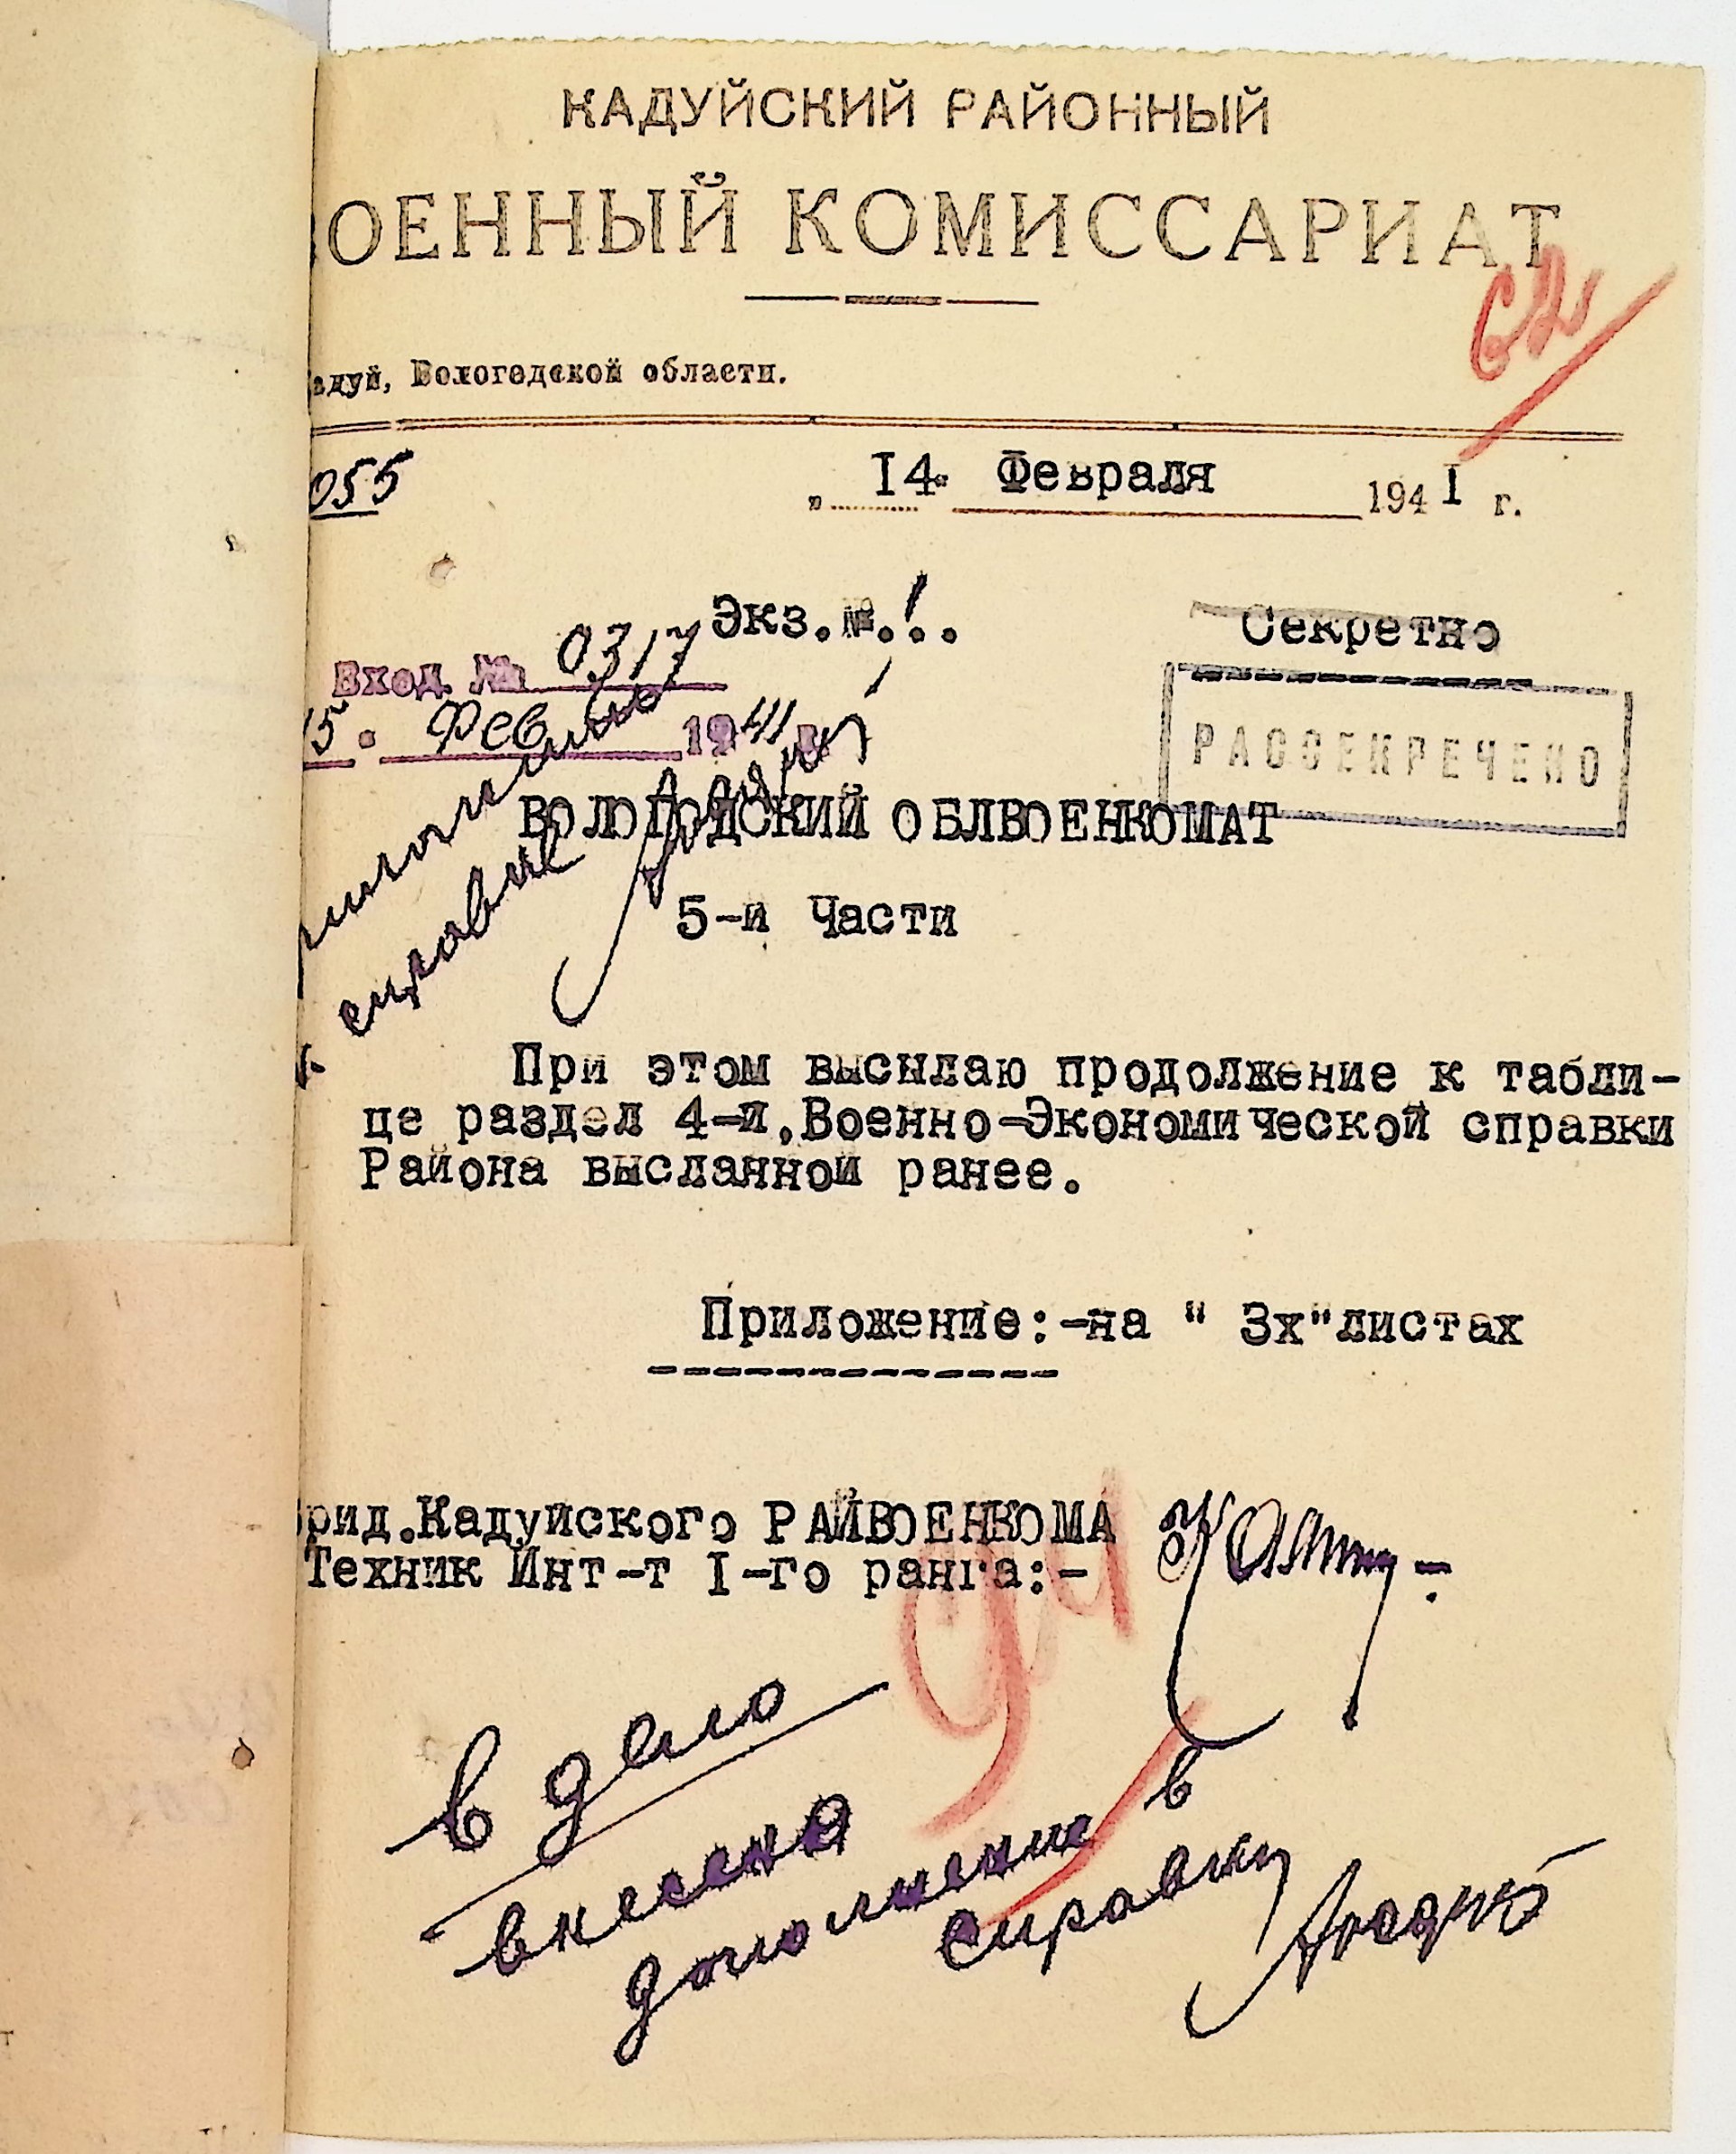 КАДУЙСКИЙ РАЙОННЫЙ
ОЕННЫЙ КОМИССАРИАТ
адуй, Вологодской области.
055
„ I4. Февраля 194I г.
Экз.№.1.. Секретно
Вход. № 0317
15. Фев 1941
РАССЕКРЕЧЕНО
ВОЛОГОДСКИЙ ОБЛВОЕНКОМАТ
5-и Части
справке
При этом высылаю продолжение к табли-
це раздел 4-й,Военно-Экономической справки
Района высланной ранее.
Приложение:-на " 3х"листах
рид.Кадуйского РАЙВОЕНКОМА
Техник Инт-т I-го ранга:-
94
в дело
внесено
дополнение в
справку